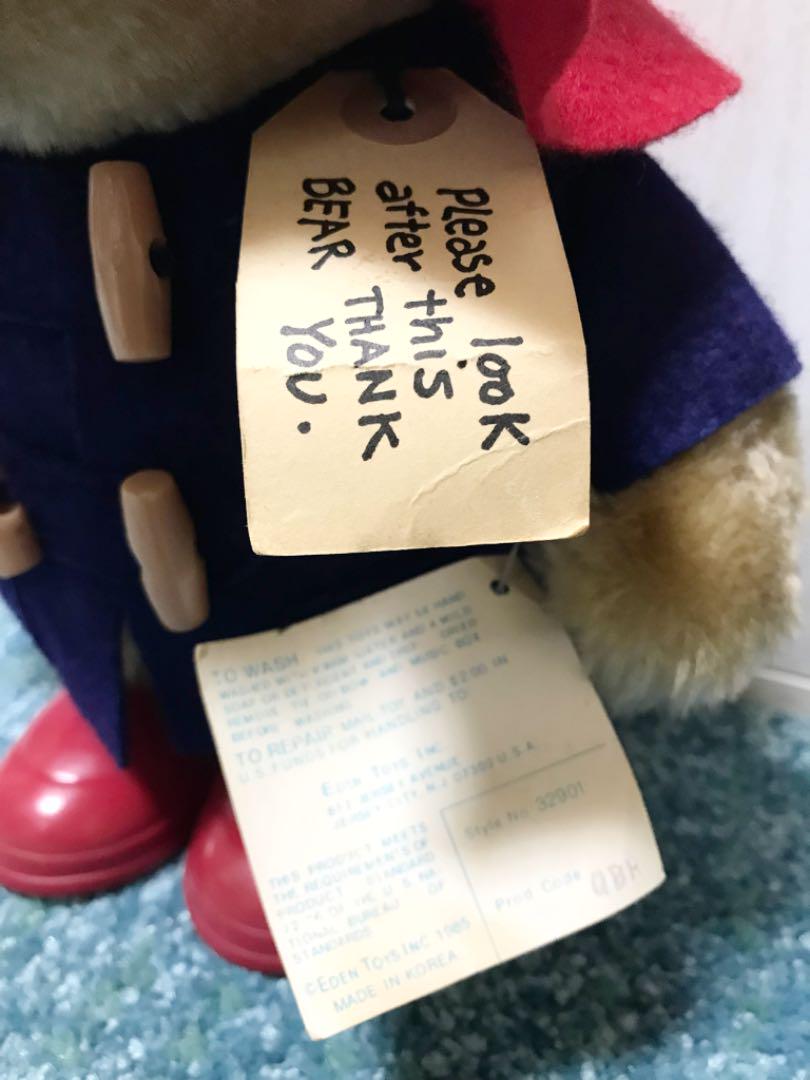 Please look
after this
BEAR THANK
YOU.
TO WASH THIS TOY MAY BE HAND
WASHED WITH WARM WATER AND A MILD
SOAP OR DETERGENT AND DRIED
REMOVE AND MUSIC BOX
BEFORE WASHING
TO REPAIR MAIL TOY AND $2.00 IN
U.S. FUNDS FOR HANDLING TO:
EDEN TOYS INC
JERSEY AVENUE
JERSEY CITY, N.J. 07302 U.S.A.
THIS PRODUCT MEETS
THE REQUIREMENTS OF
PRODUCT STANDARD
OF THE U.S. NA
TIONAL BUREAU OF
STANDARDS
Style No. 32901
Prod Code QBH
©EDEN TOYS INC 1985
MADE IN KOREA